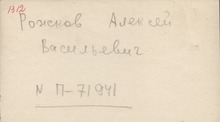 1312
Рожков Алексей
Васильевич
N П-71941